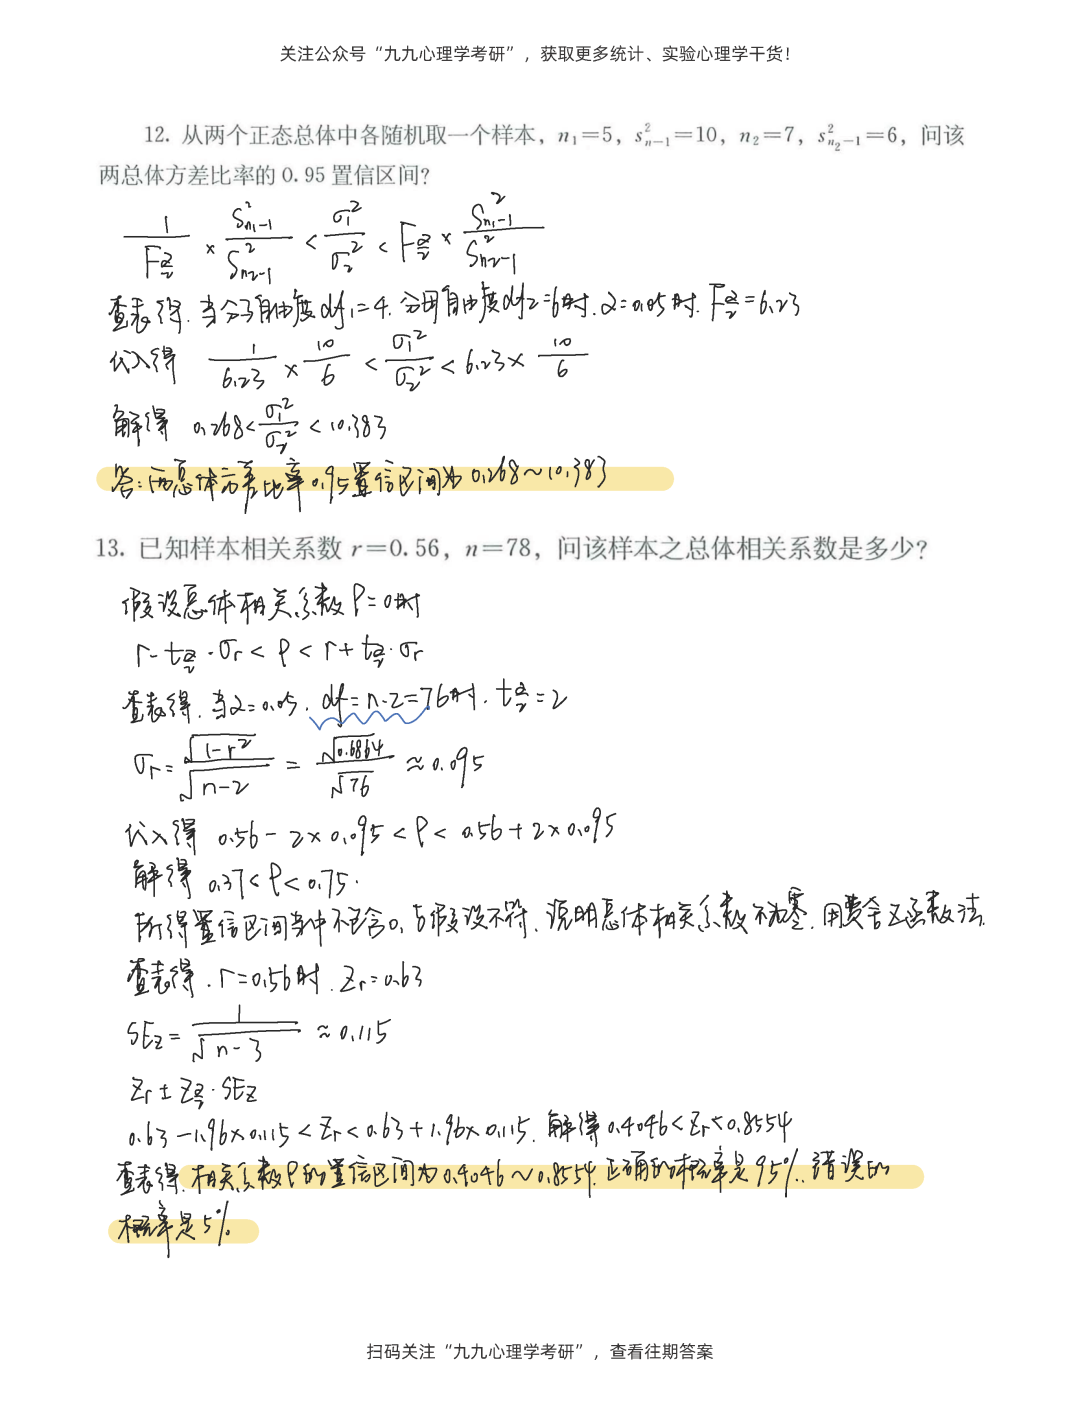 关注公众号“九九心理学考研”，获取更多统计、实验心理学干货！
12. 从两个正态总体中各随机取一个样本，n₁=5，s²ₙ₋₁=10，n₂=7，s²ₙ₂₋₁=6，问该
两总体方差比率的 0.95 置信区间？
1/F_{α/2} × S²ₙ₁₋₁/S²ₙ₂₋₁ < σ₁²/σ₂² < F_{α/2} × S²ₙ₁₋₁/S²ₙ₂₋₁
查表得，当分子自由度df₁=4，分母自由度df₂=6时，α=0.05时，F_{α/2}=6.23
代入得 1/6.23 × 10/6 < σ₁²/σ₂² < 6.23 × 10/6
解得 0.268 < σ₁²/σ₂² < 10.383
答：两总体方差比率0.95置信区间为0.268~10.383
13. 已知样本相关系数 r=0.56，n=78，问该样本之总体相关系数是多少？
假设总体相关系数ρ=0时
r-t_{α/2}·σr < ρ < r+t_{α/2}·σr
查表得，当α=0.05，df=n-2=76时，t_{α/2}=2
σr = √(1-r²)/√(n-2) = √0.6864/√76 ≈ 0.095
代入得 0.56-2×0.095<ρ<0.56+2×0.095
解得 0.37<ρ<0.75.
所得置信区间当中不包含0，与假设不符，说明总体相关系数不为零，用费舍Z函数法.
查表得，r=0.56时，Zr=0.63
SE_Z = 1/√(n-3) ≈ 0.115
Zr ± Z_{α/2}·SE_Z
0.63-1.96×0.115<Zr<0.63+1.96×0.115，解得0.4046<Zr<0.8554
查表得，相关系数ρ的置信区间为0.4046~0.8554，正确的概率是95%，错误的
概率是5%
扫码关注“九九心理学考研”，查看往期答案